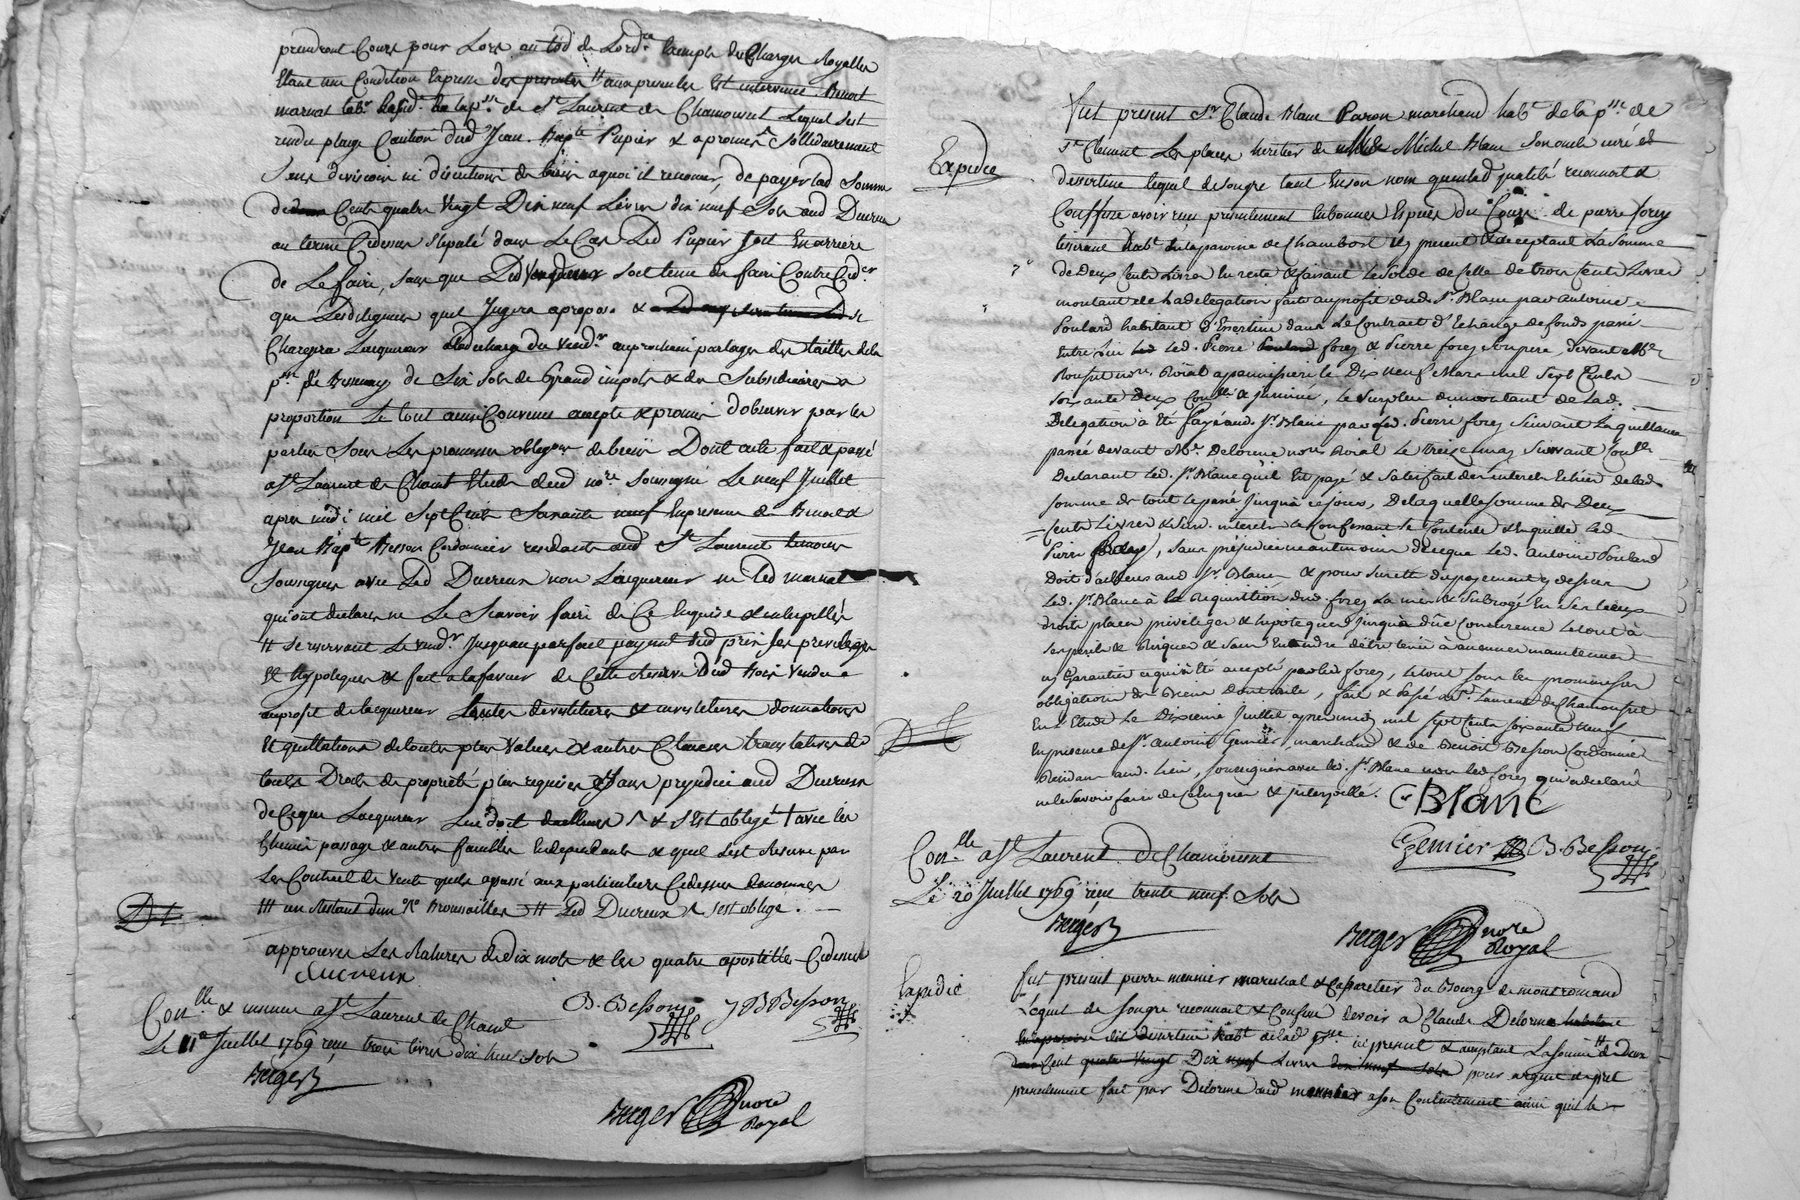 prendront Cours pour Lors au tod de Lordre Exempte des Charges Royalles
Etant une Condition Expresse des presentes # aux presentes Est intervenu Benoit
marnat labr de la psse de St Laurent de Chamousset Lequel s'est
rendu plaige Caution dud Jean Bapte Pupier & a promis Sollidairement
Sans division ni discution de biens a quoi il renonce, de payer lad Somme
de Cente quatre Vingt Dix neuf Livres dix neuf Sols aud Ducreux
au terme Cidessus Stipulé dans Le Cas Led Pupier soit En arriere
de Le faire, sans que Led Vendeur soit tenu de faire Contre
que Les diligences quil Jugera apropos &
Chargera Lacquereur a la decharge du Vendr au prochain partage des tailles de la
psse de Six Sols de Grand impots & des Subsidiaires a
proportion Le tout ainsi Convenu accepté & promis d'observer par les
parties Sous Les promesses obligons de biens Dont acte fait & passé
a St Laurent de Chamt Etude dud nore Soussigné Le neuf Juillet
apres midi mil Sept Cents Soixante neuf En presence de Benoit &
Jean Bapte Besson Cordonnier residants aud St Laurent temoins
Soussignes avec Led Ducreux non Lacquereur ni Led marnat
qui ont declaré ne Le Scavoir faire de Ce Enquis & interpellés
# se reservant Le vendr Jusquau parfait payment dud prix ses privileges
Et hypoteques & fait a la faveur de Cette Reserve Dud Bois Vendu a
au profit de Lacquereur toutes devestitures & investitures donnations
Et quittations de toutes plus Values & autres Clauses translatives de
touts Droits de proprieté plus requises & Sans prejudice aud Ducreux
de Ceque Lacquereur Lui doit dailleurs & s'Est obligé avec les
Chemin passage & autres facultés Independants & quil s'est Reservé par
Les Contract de Vente quils a passé aux particuliers Cidessus denommés
### en Restant dune Broussailles # Led Ducreux s'est oblige.
Dt
approuvés Les Ratures de dix mots & les quatre apostilles Cidessus
ducreux
B. Besson J B Besson
Conlle & insinué a St Laurent de Chamt
Le 11e Juillet 1769 reçu trois livres dix huit Sols
Berger
Berger nore Royal
Expedié
Fut present Sr Claude Blanc Paron marchand habt de la psse de
St Clement Les places heritier de Michel Blanc Son oncle curé de
dessertine lequel de Son gre tant En son nom quen lad qualité reconnoit &
Confesse avoir reçu presentement En bonnes Especes du Cours de pierre forey
tisserant habt de la paroisse de Chambost icy present & acceptant La Somme
de Deux Cents Livres En reste & faisant le Solde de Celle de trois Cents Livres
montant de la delegation faite au profit dud Sr Blanc par antoine
Poulard habitant d'Essertine dans Le Contract d'Echange de fonds passé
Entre Lui led. Pierre forey & Pierre forey Son pere, devant Me
nore Roial a pannissiere le Dix neuf Mars mil Sept Cents
Soixante Deux Conllé & insinué, le Surplus du montant de Lad.
Delegation a été payé aud. Sr Blanc par Led. Pierre forey Suivant La quittance
passée devant Me Delorme nore Roial Le treize may Suivant Conllé
Declarant Led. Sr Blanc quil Est payé & Satisfait des interets Echus de lad.
Somme de tout le passé Jusqua ce jour, De laquelle Somme de Deux
Cents Livres & Sur. interets Se Confessant Se Contente & En quitte Led.
Pierre forey, sans préjudice neantmoins de Ceque Led. antoine Poulard
Doit d'ailleurs aud Sr Blanc, & pour Sureté du payement y dessus
Led. Sr Blanc à la Requisition dud. forey La mis & Subrogé En Ses Lieux
droits places privileges & hipoteques Jusqu'a due Concurence le tout à
Ses perils & Risques & sans Entendre d'etre tenu à aucunes maintenues
ny Garantie ce qui a été accepté par led forey, le tout Sous les promesses
obligation de Biens dont acte, fait & Passé a St Laurent de Chamousset
En L'Etude Le Dixieme Juillet apres midi mil Sept Cents Soixante Neuf
En presence de Sr antoine Gemier marchand & de Benoit Besson Cordonnier
Residants aud. Lieu, Soussignés avec led. Sr Blanc non led forey qui a declaré
ne le Savoir faire de Ce Enquis & interpellé.
C Blanc
Gemier B. Besson
Dt
Conlle a St Laurent de Chamousset
Le 20 Juillet 1769 reçu trente neuf Sols
Berger
Berger nore Royal
Expedié
Fut present pierre monnier marechal & Cabaretier du Bourg de montromand
Lequel de Son gre reconnoit & Confesse devoir a Claude Delorme habitant
habt de lad psse ici present & acceptant La Somme # de Deux
Cent quatre Vingt Dix neuf Livres dix neuf Sols pour argent de pret
presentement fait par Delorme aud monnier a son Contentement ainsi quil le